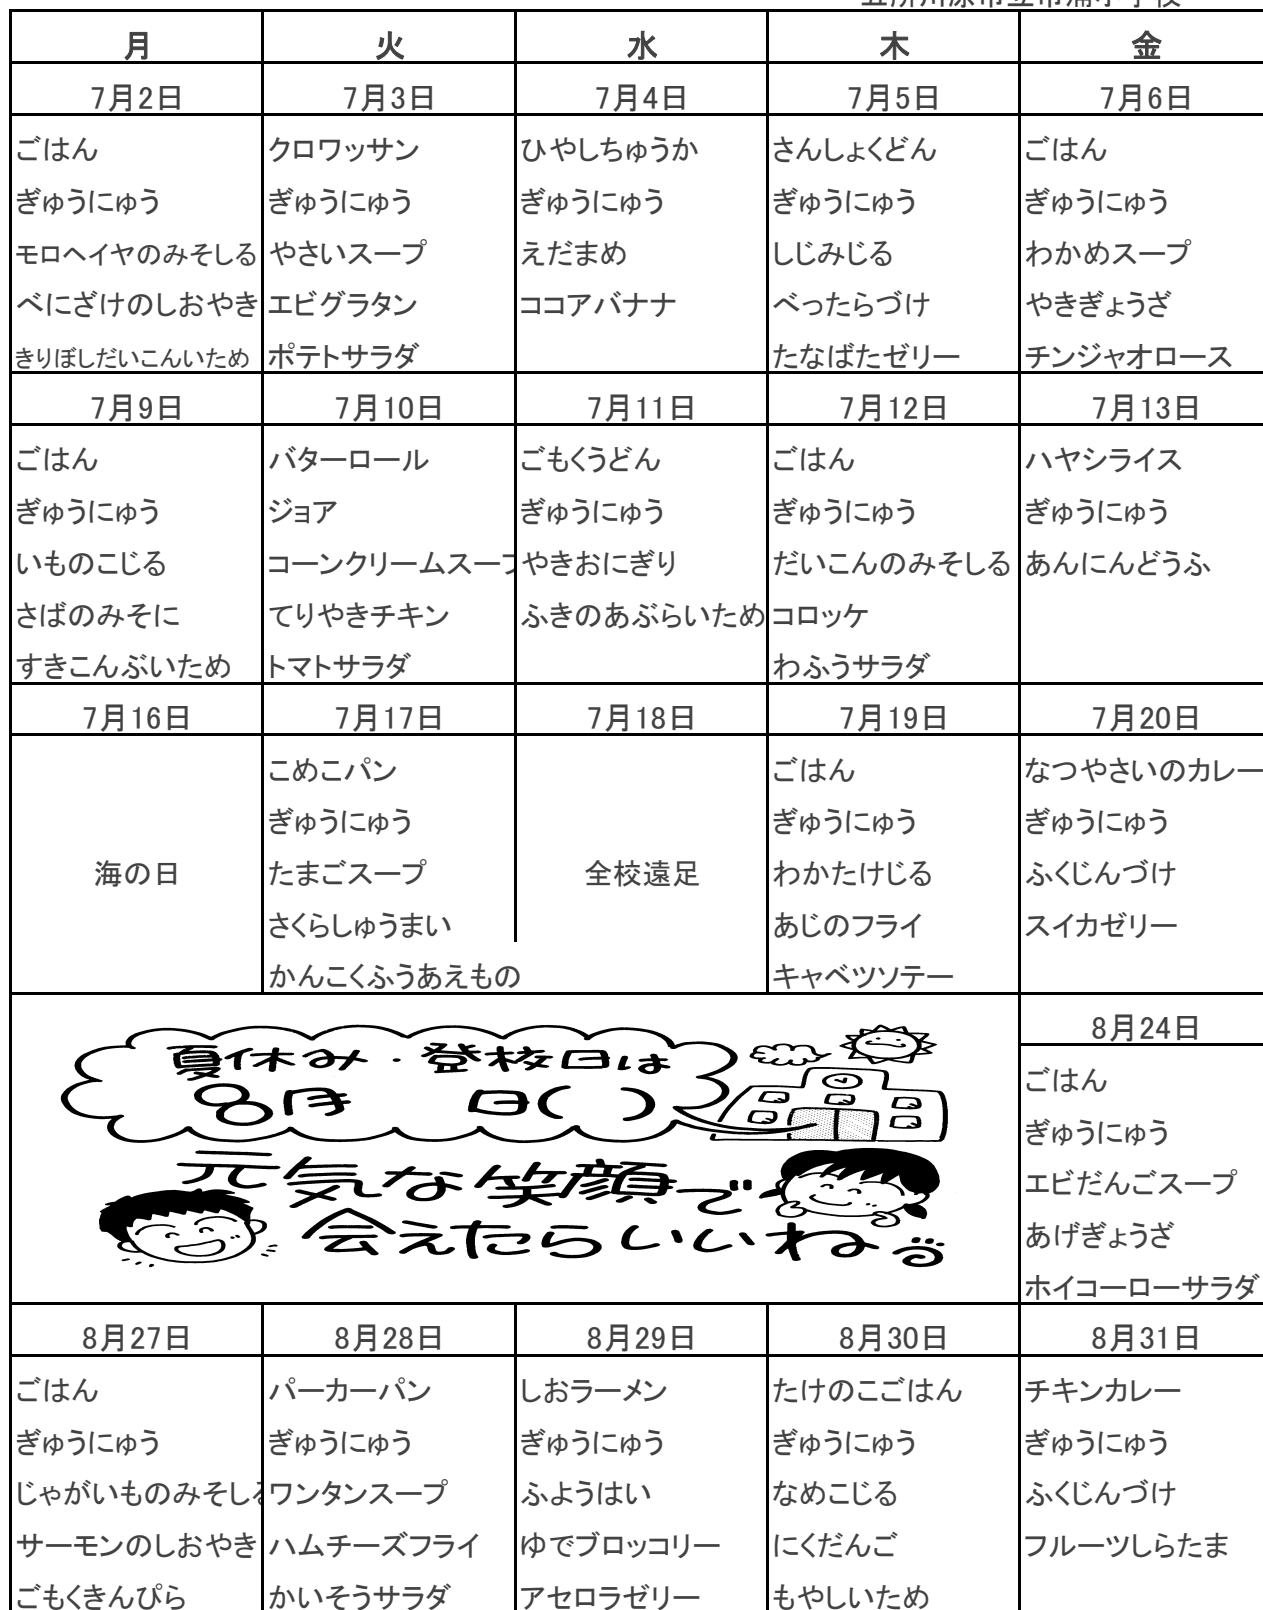 月 火 水 木 金
7月2日 7月3日 7月4日 7月5日 7月6日
ごはん クロワッサン ひやしちゅうか さんしょくどん ごはん
ぎゅうにゅう ぎゅうにゅう ぎゅうにゅう ぎゅうにゅう ぎゅうにゅう
モロヘイヤのみそしる やさいスープ えだまめ しじみじる わかめスープ
べにざけのしおやき エビグラタン ココアバナナ べったらづけ やきぎょうざ
きりぼしだいこんいため ポテトサラダ たなばたゼリー チンジャオロース
7月9日 7月10日 7月11日 7月12日 7月13日
ごはん バターロール ごもくうどん ごはん ハヤシライス
ぎゅうにゅう ジョア ぎゅうにゅう ぎゅうにゅう ぎゅうにゅう
いものこじる コーンクリームスープ やきおにぎり だいこんのみそしる あんにんどうふ
さばのみそに てりやきチキン ふきのあぶらいため コロッケ
すきこんぶいため トマトサラダ わふうサラダ
7月16日 7月17日 7月18日 7月19日 7月20日
こめこパン ごはん なつやさいのカレー
ぎゅうにゅう ぎゅうにゅう ぎゅうにゅう
海の日 たまごスープ 全校遠足 わかたけじる ふくじんづけ
さくらしゅうまい あじのフライ スイカゼリー
かんこくふうあえもの キャベツソテー
夏休み・登校日は
8月 日( )
元気な笑顔で
会えたらいいね
8月24日
ごはん
ぎゅうにゅう
エビだんごスープ
あげぎょうざ
ホイコーローサラダ
8月27日 8月28日 8月29日 8月30日 8月31日
ごはん パーカーパン しおラーメン たけのこごはん チキンカレー
ぎゅうにゅう ぎゅうにゅう ぎゅうにゅう ぎゅうにゅう ぎゅうにゅう
じゃがいものみそしる ワンタンスープ ふようはい なめこじる ふくじんづけ
サーモンのしおやき ハムチーズフライ ゆでブロッコリー にくだんご フルーツしらたま
ごもくきんぴら かいそうサラダ アセロラゼリー もやしいため